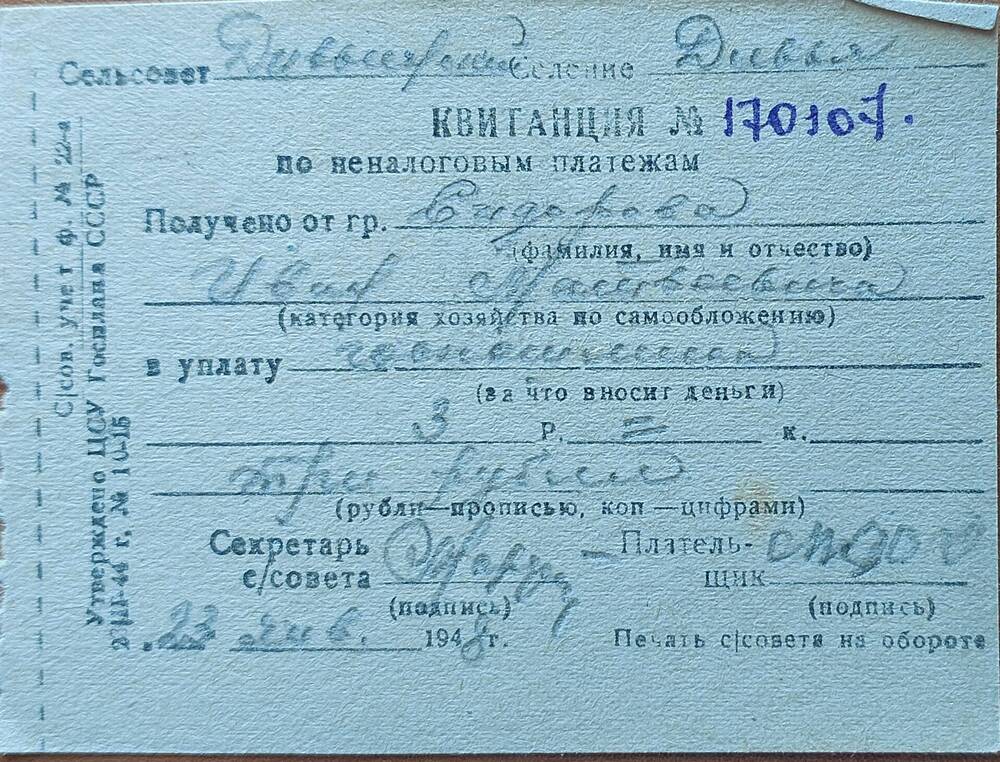 Сельсовет Дивьинский Селение Дивья
КВИТАНЦИЯ № 170107.
по неналоговым платежам
Получено от гр. Сидорова
(фамилия, имя и отчество)
Иван Матвеевича
(категория хозяйства по самообложению)
в уплату
(за что вносит деньги)
3 р. = к.
три рубля
(рубли—прописью, коп —цифрами)
Секретарь Платель-
с/совета щик
(подпись) (подпись)
23 янв. 1948г. Печать с|совета на обороте
С|сов. учет ф. № 22-а
Утверждено ЦСУ Госплана СССР
2|III-44 г, № 10-1Б